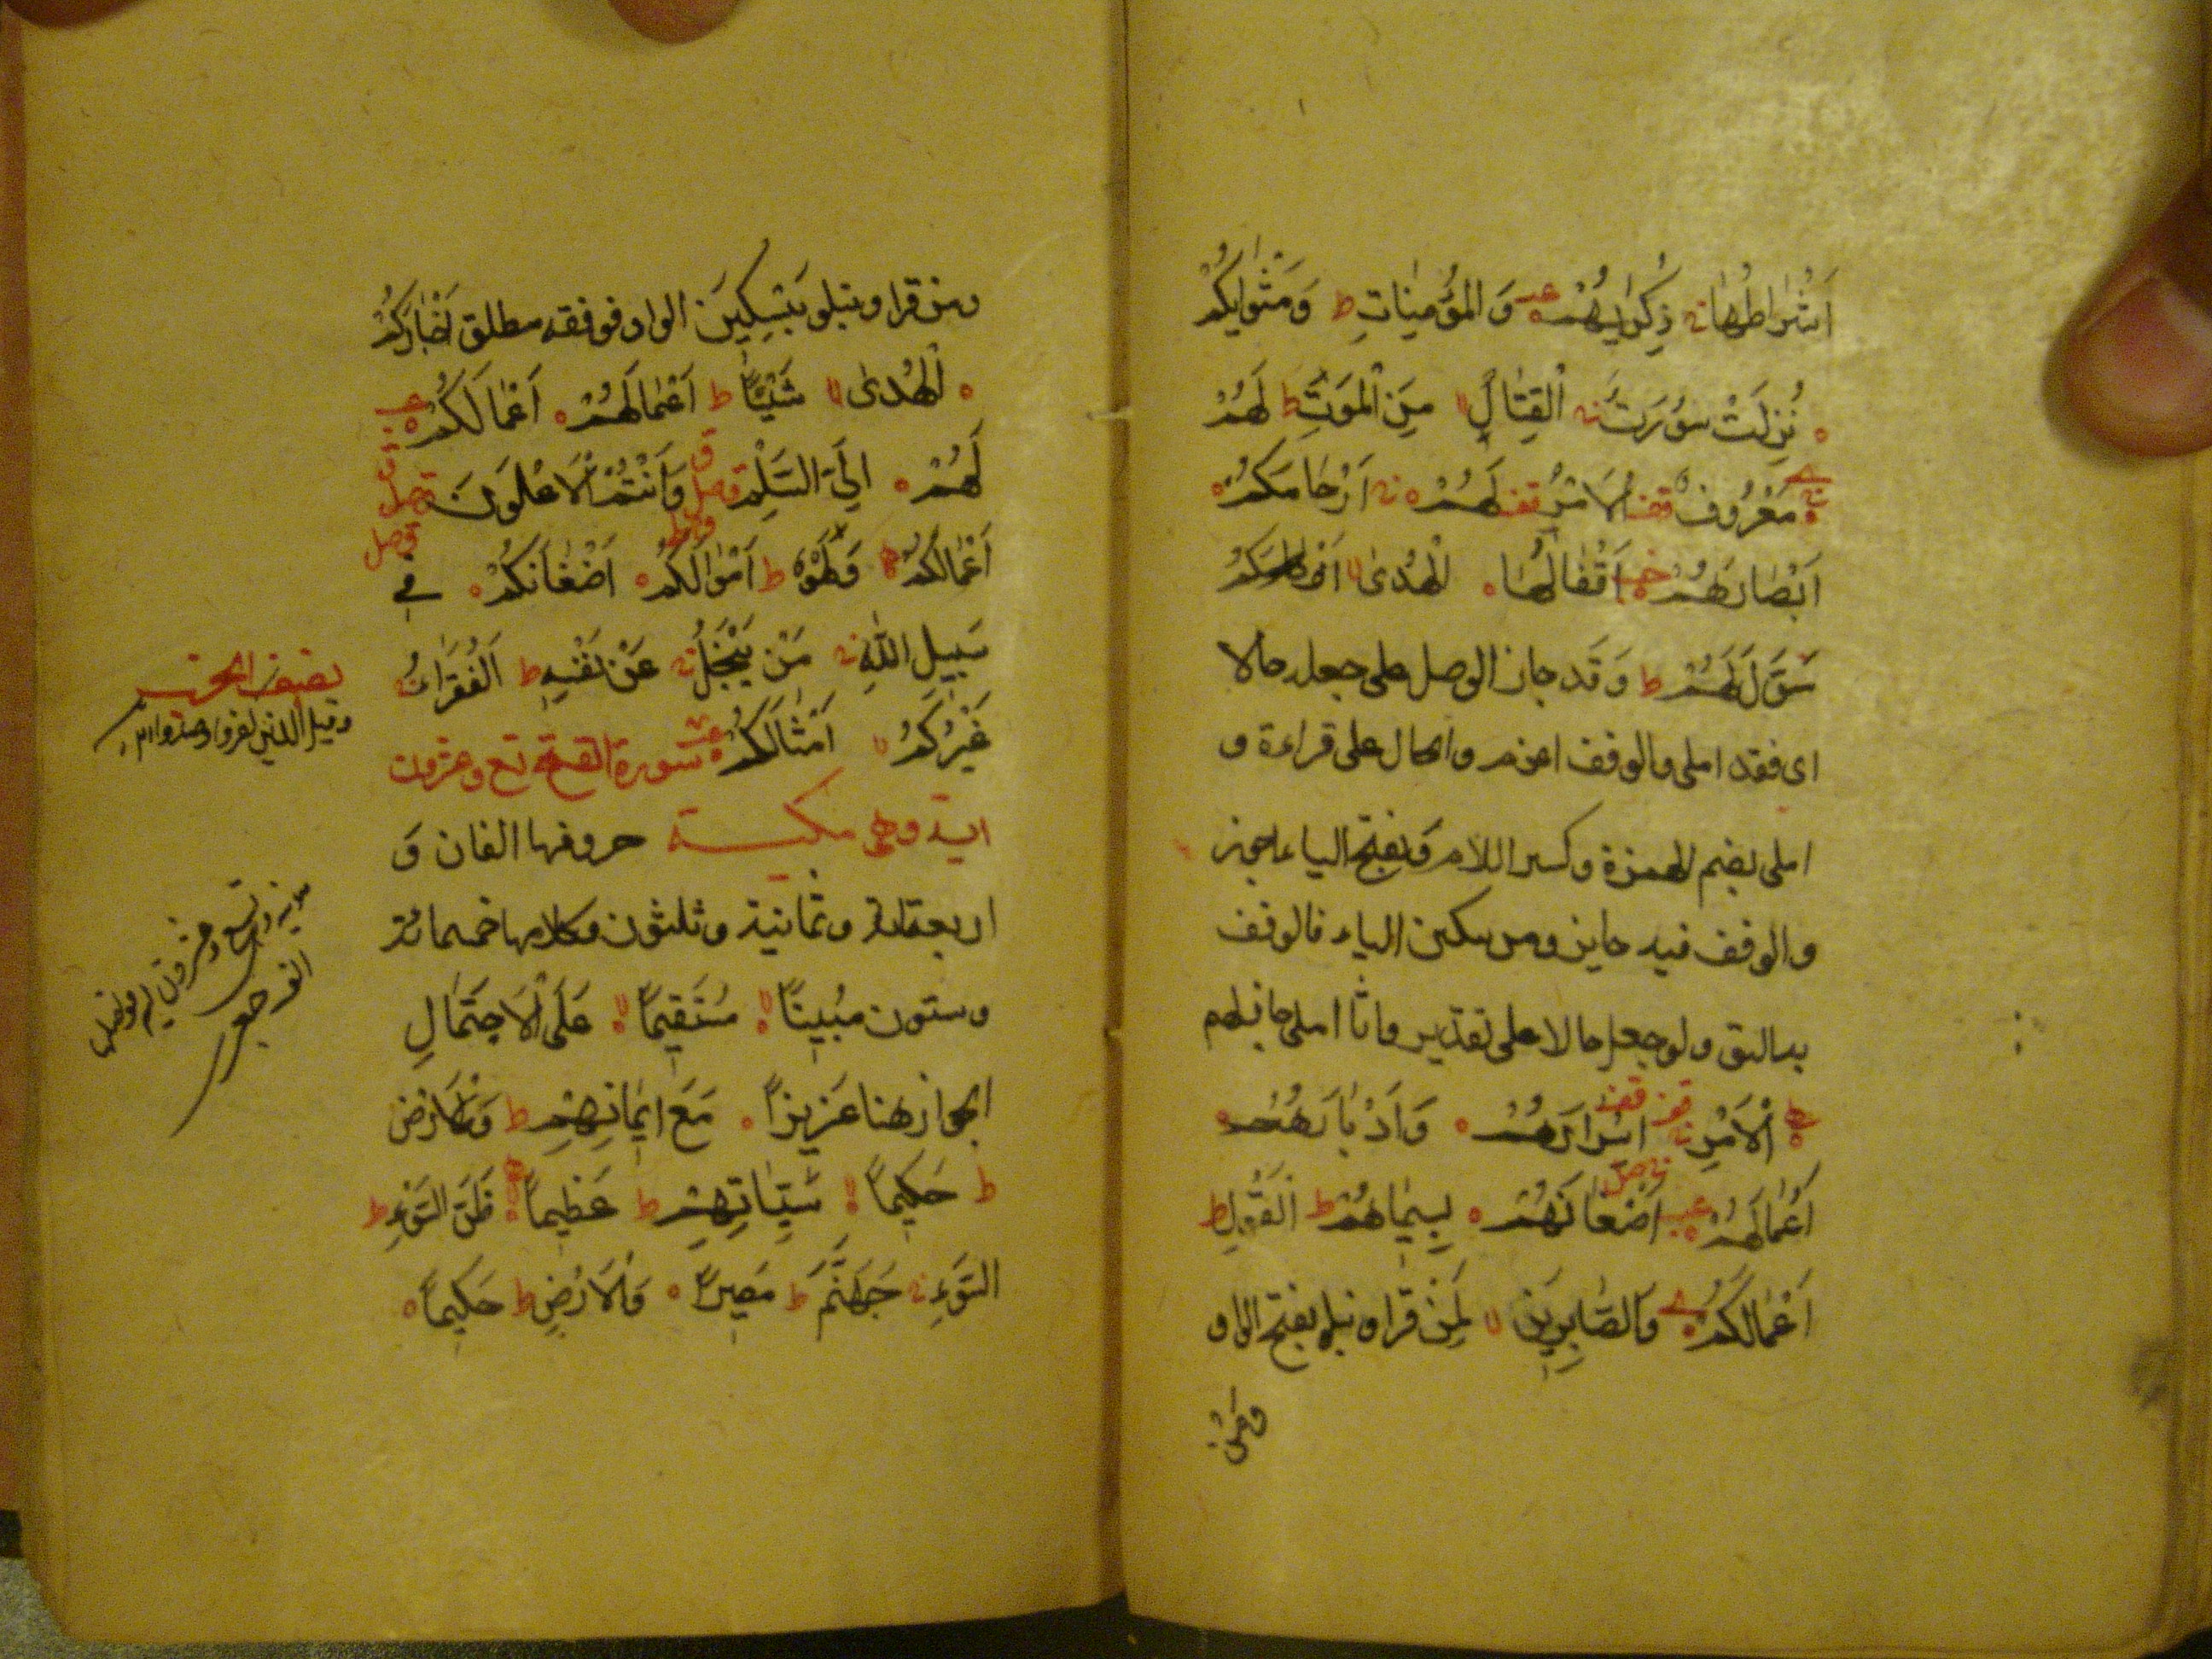 اَشْرَاطُهَا ۚ ذِكْرٰيهُمْ ۰ عب وَالْمُؤْمِنَاتِ ط وَمَثْوٰيكُمْ
۰ نُزِّلَتْ سُوْرَتٌ ۚ الْقِتَالُ لا مِنَ الْمَوْتِ ط لَهُمْ
۰ مَعْرُوفٌ قف الْاَمْرُ قف لَهُمْ ۰ اَرْحَامَكُمْ ۰
اَبْصَارَهُمْ ۰ اَقْفَالُهَا ۰ الْهُدٰى لا
سَوَّلَ لَهُمْ ط وَقَد جاز الوصل على جعله حالا
اى فقد املى والوقف اعزم والحال على قراءة و
املى بضم الهمزة وكسر اللام وَبفتح الياء اجوز
والوقف فيه جايز ومن سكن الياء فالوقف
به اليق ولو جعل حالا على تقدير وانا املى جاز لهم
الْاَمْرِ ۚ قف اسْرَارَهُمْ ۰ وَاَدْبَارَهُمْ ۰
اَعْمَالَهُمْ ۰ عب اَضْغَانَهُمْ ۰ بِسِيمَاهُمْ ط الْقَوْلِ ط
اَعْمَالَكُمْ ۰ وَالصَّابِرِيْنَ لا لِمَنْ قرا ونبلو بفتح الواو
ومن قرا
ومن قرا ونبلو بتسكين الواو فوقفه مطلق اَخْبَارَكُمْ
۰ الْهُدٰى لا شَيْئًا ط اَعْمَالَهُمْ ۰ اَعْمَالَكُمْ ۰ عب
لَهُمْ ۰ اِلَى السَّلْمِ ق صل وَاَنْتُمُ الْاَعْلَوْنَ ق صل
اَعْمَالَكُمْ ۰ وَلَهْوٌ ط اَمْوَالَكُمْ ۰ اَضْغَانَكُمْ ۰ فِى
سَبِيلِ اللّٰهِ ۚ مَنْ يَبْخَلُ ۚ عَنْ نَفْسِهِ ط الْفُقَرَاءُ ۚ
غَيْرَكُمْ لا اَمْثَالَكُمْ ۰ سورة الفتح تسع وعشرون
اية وهى مكية حروفها الفان وَ
اربعمائة وثمانية وثلثون وكلامها خمسمائة
وستون مُبِينًا لا مُسْتَقِيمًا لا عَلَى الْاحتِمَالِ
الجواز هنا عَزِيزًا ۰ مَعَ اِيمَانِهِمْ ط وَالْاَرْضِ
ط حَكِيمًا لا سَيِّئَاتِهِمْ ط عَظِيمًا لا ظَنَّ السَّوْءِ ط
السَّوْءِ ۚ جَهَنَّمَ ط مَصِيرًا ۰ وَالْاَرْضِ ط حَكِيمًا ۰
نصف الحزب
وقيل الذين كفروا وصدوا